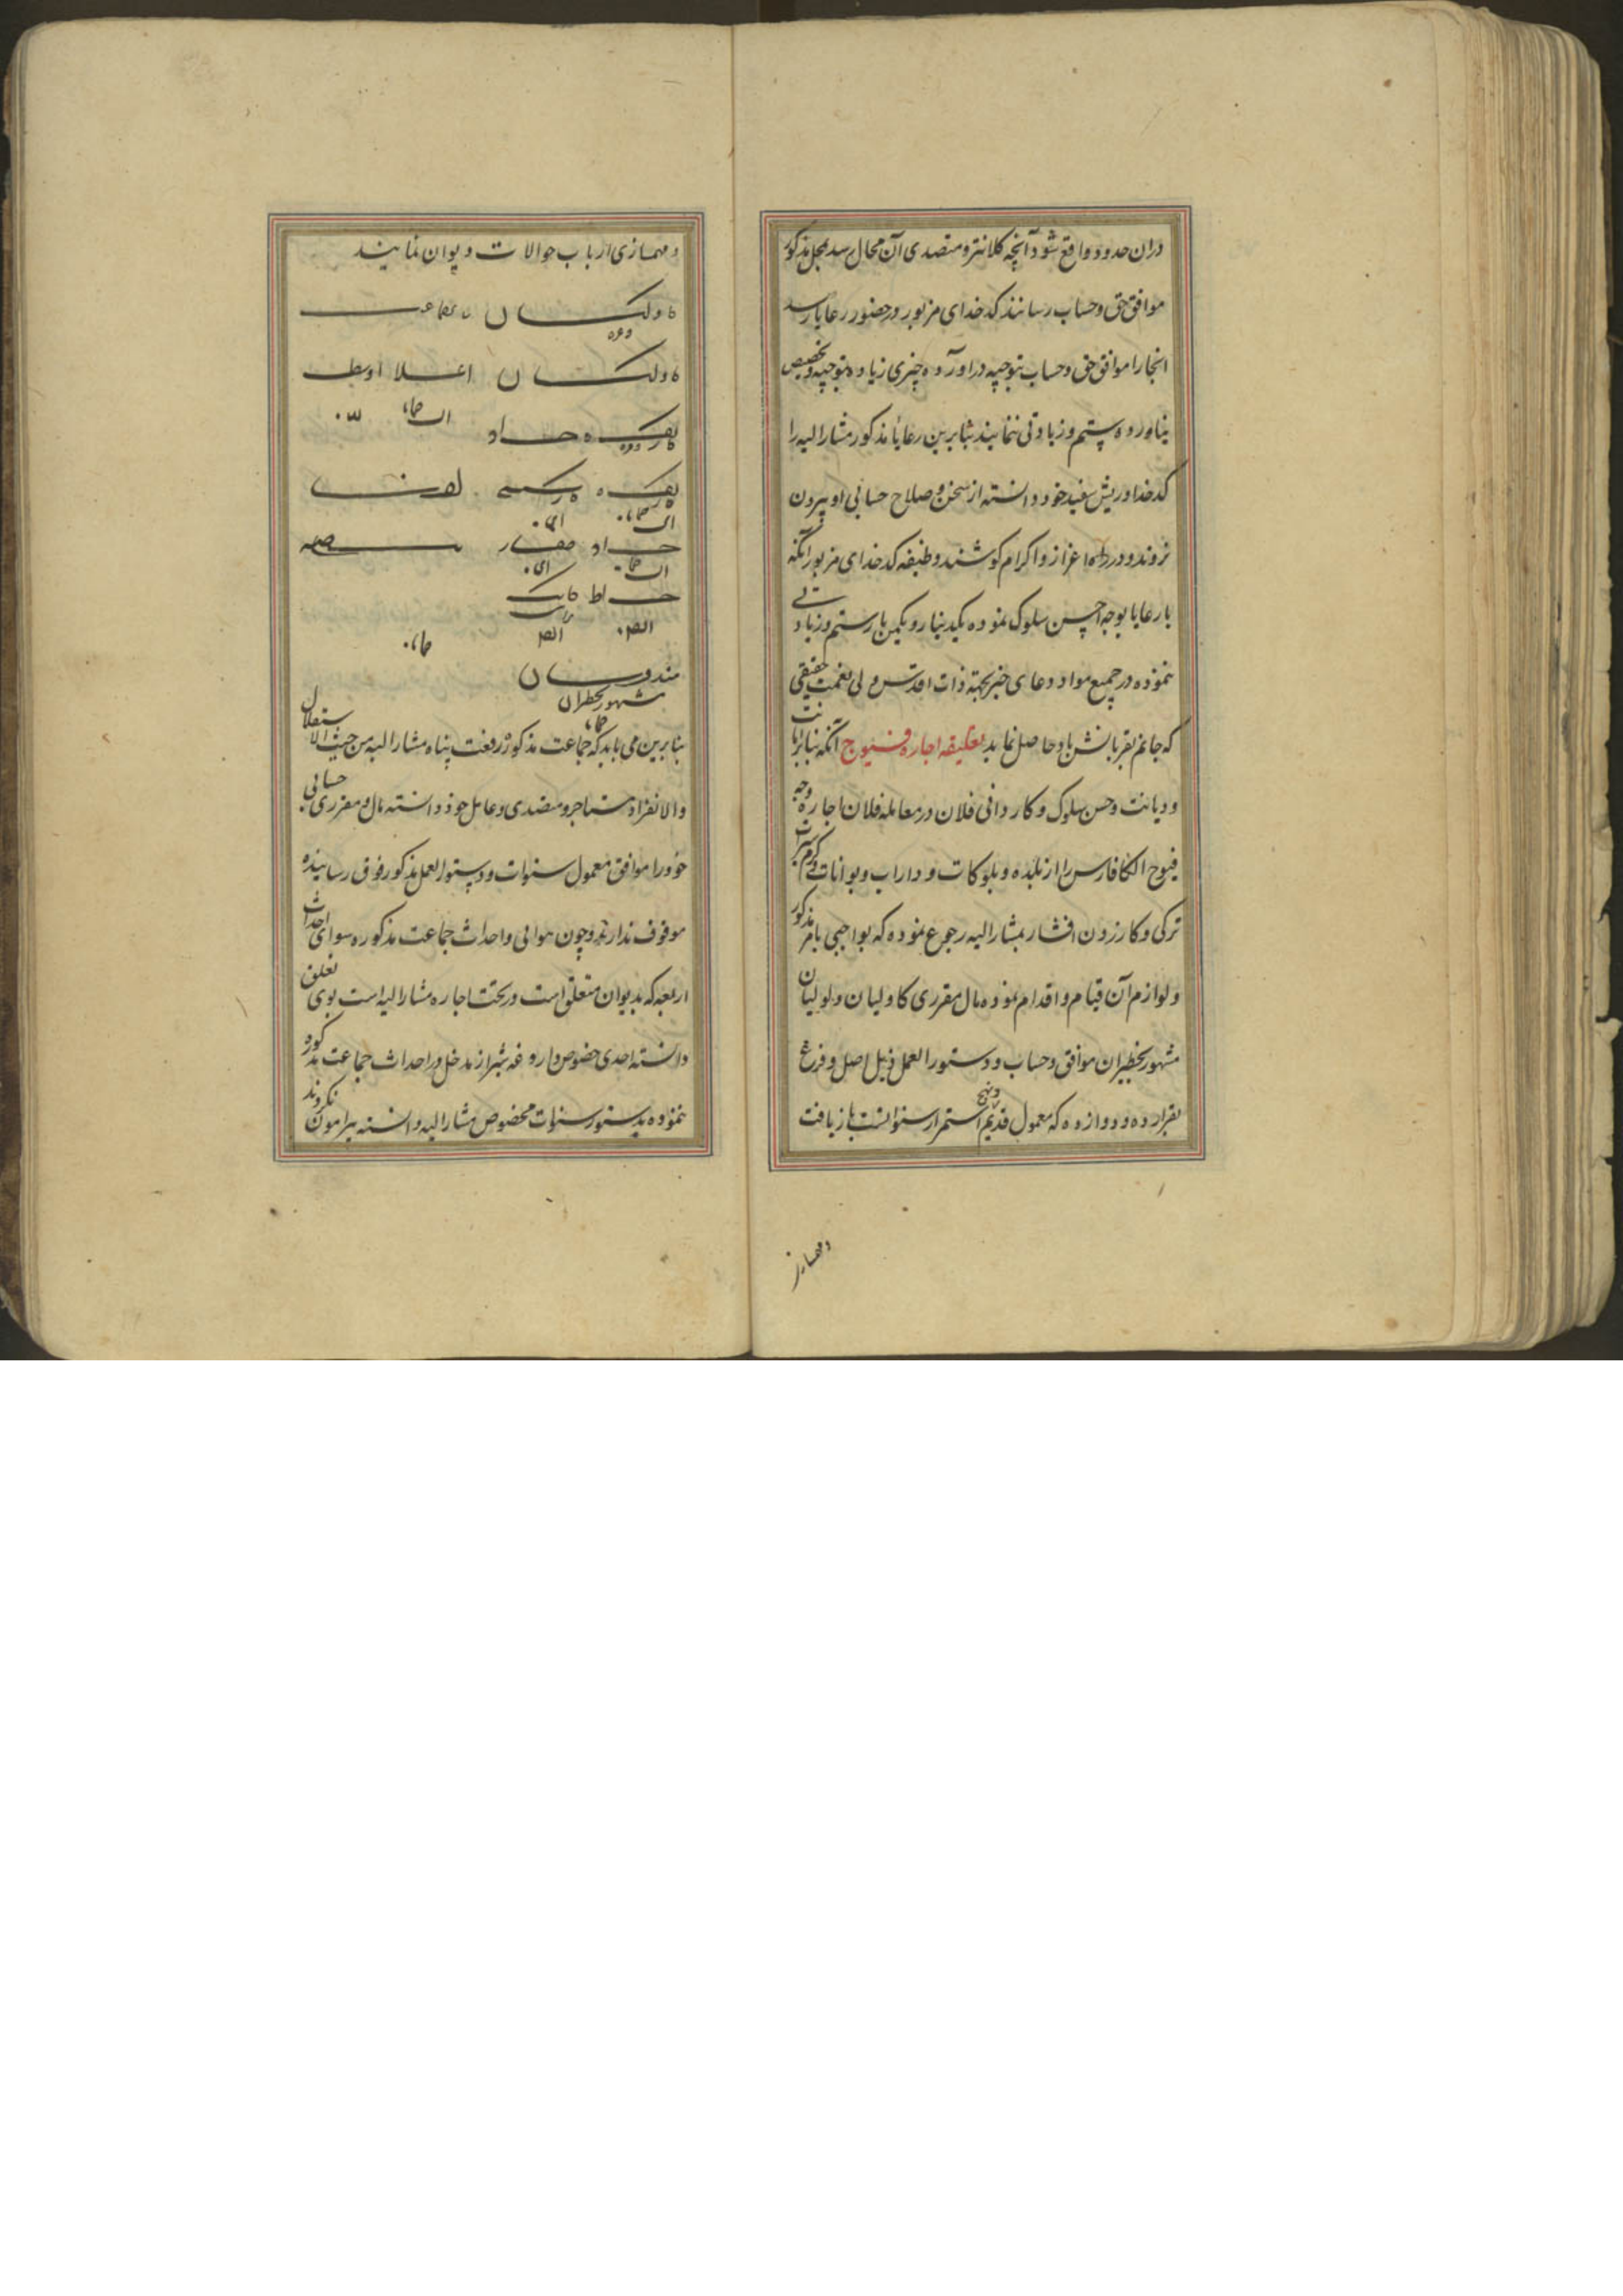 دران حدود واقع شود آنچه کلانتر و متصدی آن محال رسد بمحل مذکور
موافق حق و حساب رسانند کدخدای مزبور در حضور رعایا رسد
انجا را موافق حق و حساب بتوجیه دراورده چیزی زیاده بتوجیه و تخصیص
نیاورده ستم و زیادتی ننمایند بنابرین رعایا مذکور مشارالیه را
کدخدا و ریش سفید خود دانسته از سخن و صلاح حسابی او بیرون
نروند و در اعزاز و اکرام کوشند و ظیفه کدخدای مزبور آنکه
با رعایا بوجه احسن سلوک نموده یکدینار و یکمن بار ستم و زیادتی
ننموده در جمیع مواد دعای خیر بجهة ذات اقدس ولی نعمت حقیقی
که جانم بقربانش باد حاصل نماید تعلیقه اجاره فیوج آنکه بنابر امانت
و دیانت و حسن سلوک و کاردانی فلان در معامله فلان اجاره وجه
فیوج الکا فارس را از بلده و بلوکات و داراب و بوانات و گرمسیرات
ترکی و کازرون افشار بمشارالیه رجوع نموده که بواجبی بامر مذکور
و لوازم آن قیام و اقدام نموده مال مقرری کاولیان و لولیان
مشهور بخطیران موافق حساب و دستورالعمل ذیل اصل و فرع
بقرار ده و دوازده و پنج که معمول قدیم استمرار سنواتست بازیافت
ومهمساز
و مهمسازی ارباب حوالات دیوان نمایند
کاولیان
کاولیان اعلا اوسط
حداد
حداد
خراط
هندوستان
مشهور بخطران
بنابرین می باید که جماعت مذکور رفعت پناه مشارالیه من حیث الاستقلال
والانفراد مستاجر و متصدی و عامل خود دانسته مال مقرری حسابی
خود را موافق معمول سنوات و دستورالعمل مذکور فوق رسانیده
موقوف ندارند و چون هوائی و احداث جماعت مذکوره سوای احداث
اربعه که بدیوان متعلق است در تحت اجاره مشارالیه است بوی تعلق
دانسته احدی خصوص داروغه شیراز مدخل در احداث جماعت مذکوره
ننموده بدستور سنوات مخصوص مشارالیه دانسته پیرامون نکردند